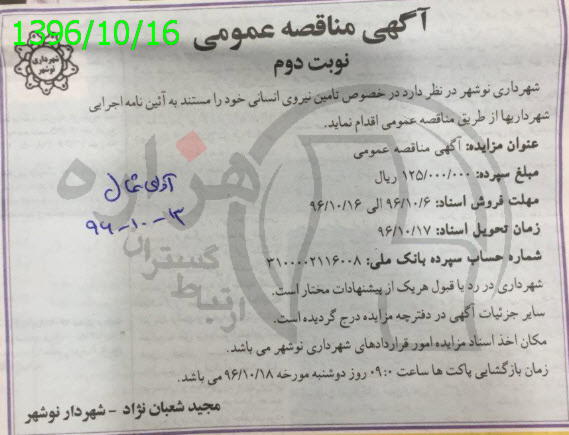 1396/10/16
آگهی مناقصه عمومی
نوبت دوم
شهرداری
نوشهر
شهرداری نوشهر در نظر دارد در خصوص تامین نیروی انسانی خود را مستند به آئین نامه اجرایی
شهرداریها از طریق مناقصه عمومی اقدام نماید.
عنوان مزایده: آگهی مناقصه عمومی
مبلغ سپرده: ۱۲۵/۰۰۰/۰۰۰ ریال
مهلت فروش اسناد: ۹۶/۱۰/۶ الی ۹۶/۱۰/۱۶
زمان تحویل اسناد: ۹۶/۱۰/۱۷
شماره حساب سپرده بانک ملی: ۳۱۰۰۰۰۲۱۱۶۰۰۸
شهرداری در رد یا قبول هریک از پیشنهادات مختار است.
سایر جزئیات آگهی در دفترچه مزایده درج گردیده است.
مکان اخذ اسناد مزایده امور قراردادهای شهرداری نوشهر می باشد.
زمان بازگشایی پاکت ها ساعت ۰۹:۰۰ روز دوشنبه مورخه ۹۶/۱۰/۱۸ می باشد.
مجید شعبان نژاد - شهردار نوشهر
آوای شمال
۹۶-۱۰-۱۳
هزاره
گستران
ارتباط